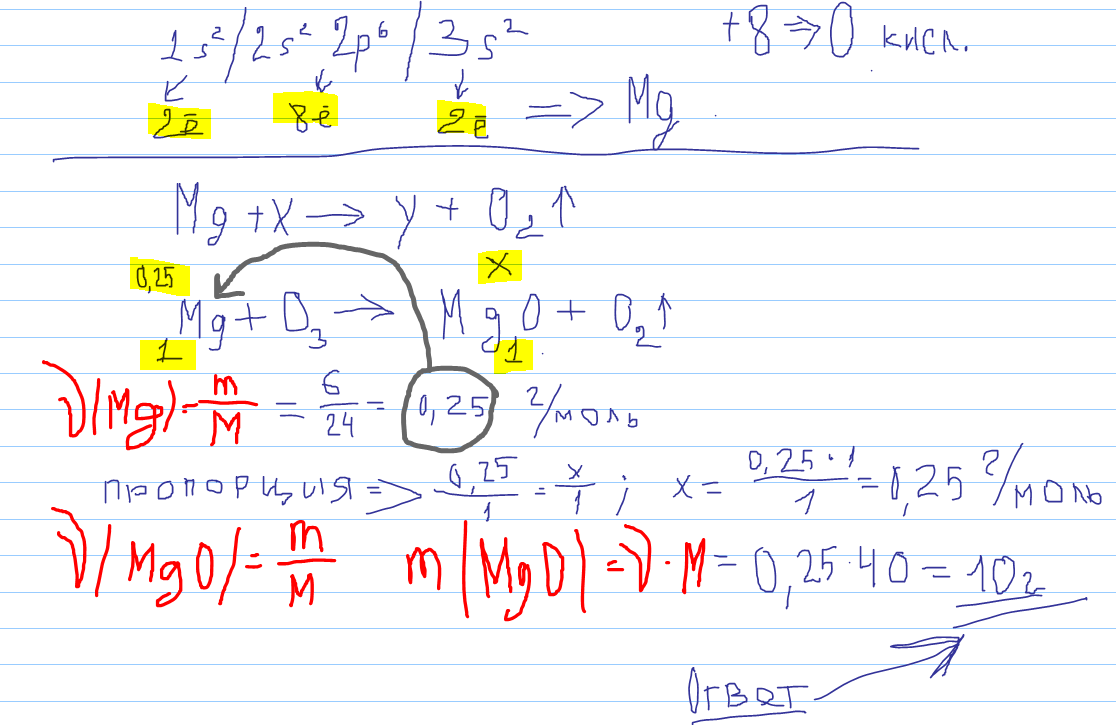 1s²/2s² 2p⁶/3s² +8⇒O кисл.
2ē 8ē 2ē => Mg
Mg + X → Y + O₂↑
0,25 x
Mg + O₃ → MgO + O₂↑
1 1
ν(Mg) = m/M = 6/24 = 0,25 г/моль
пропорция => 0,25/1 = x/1 ; x = 0,25·1/1 = 0,25 г/моль
ν(MgO) = m/M m(MgO) = ν·M = 0,25·40 = 10г
Ответ